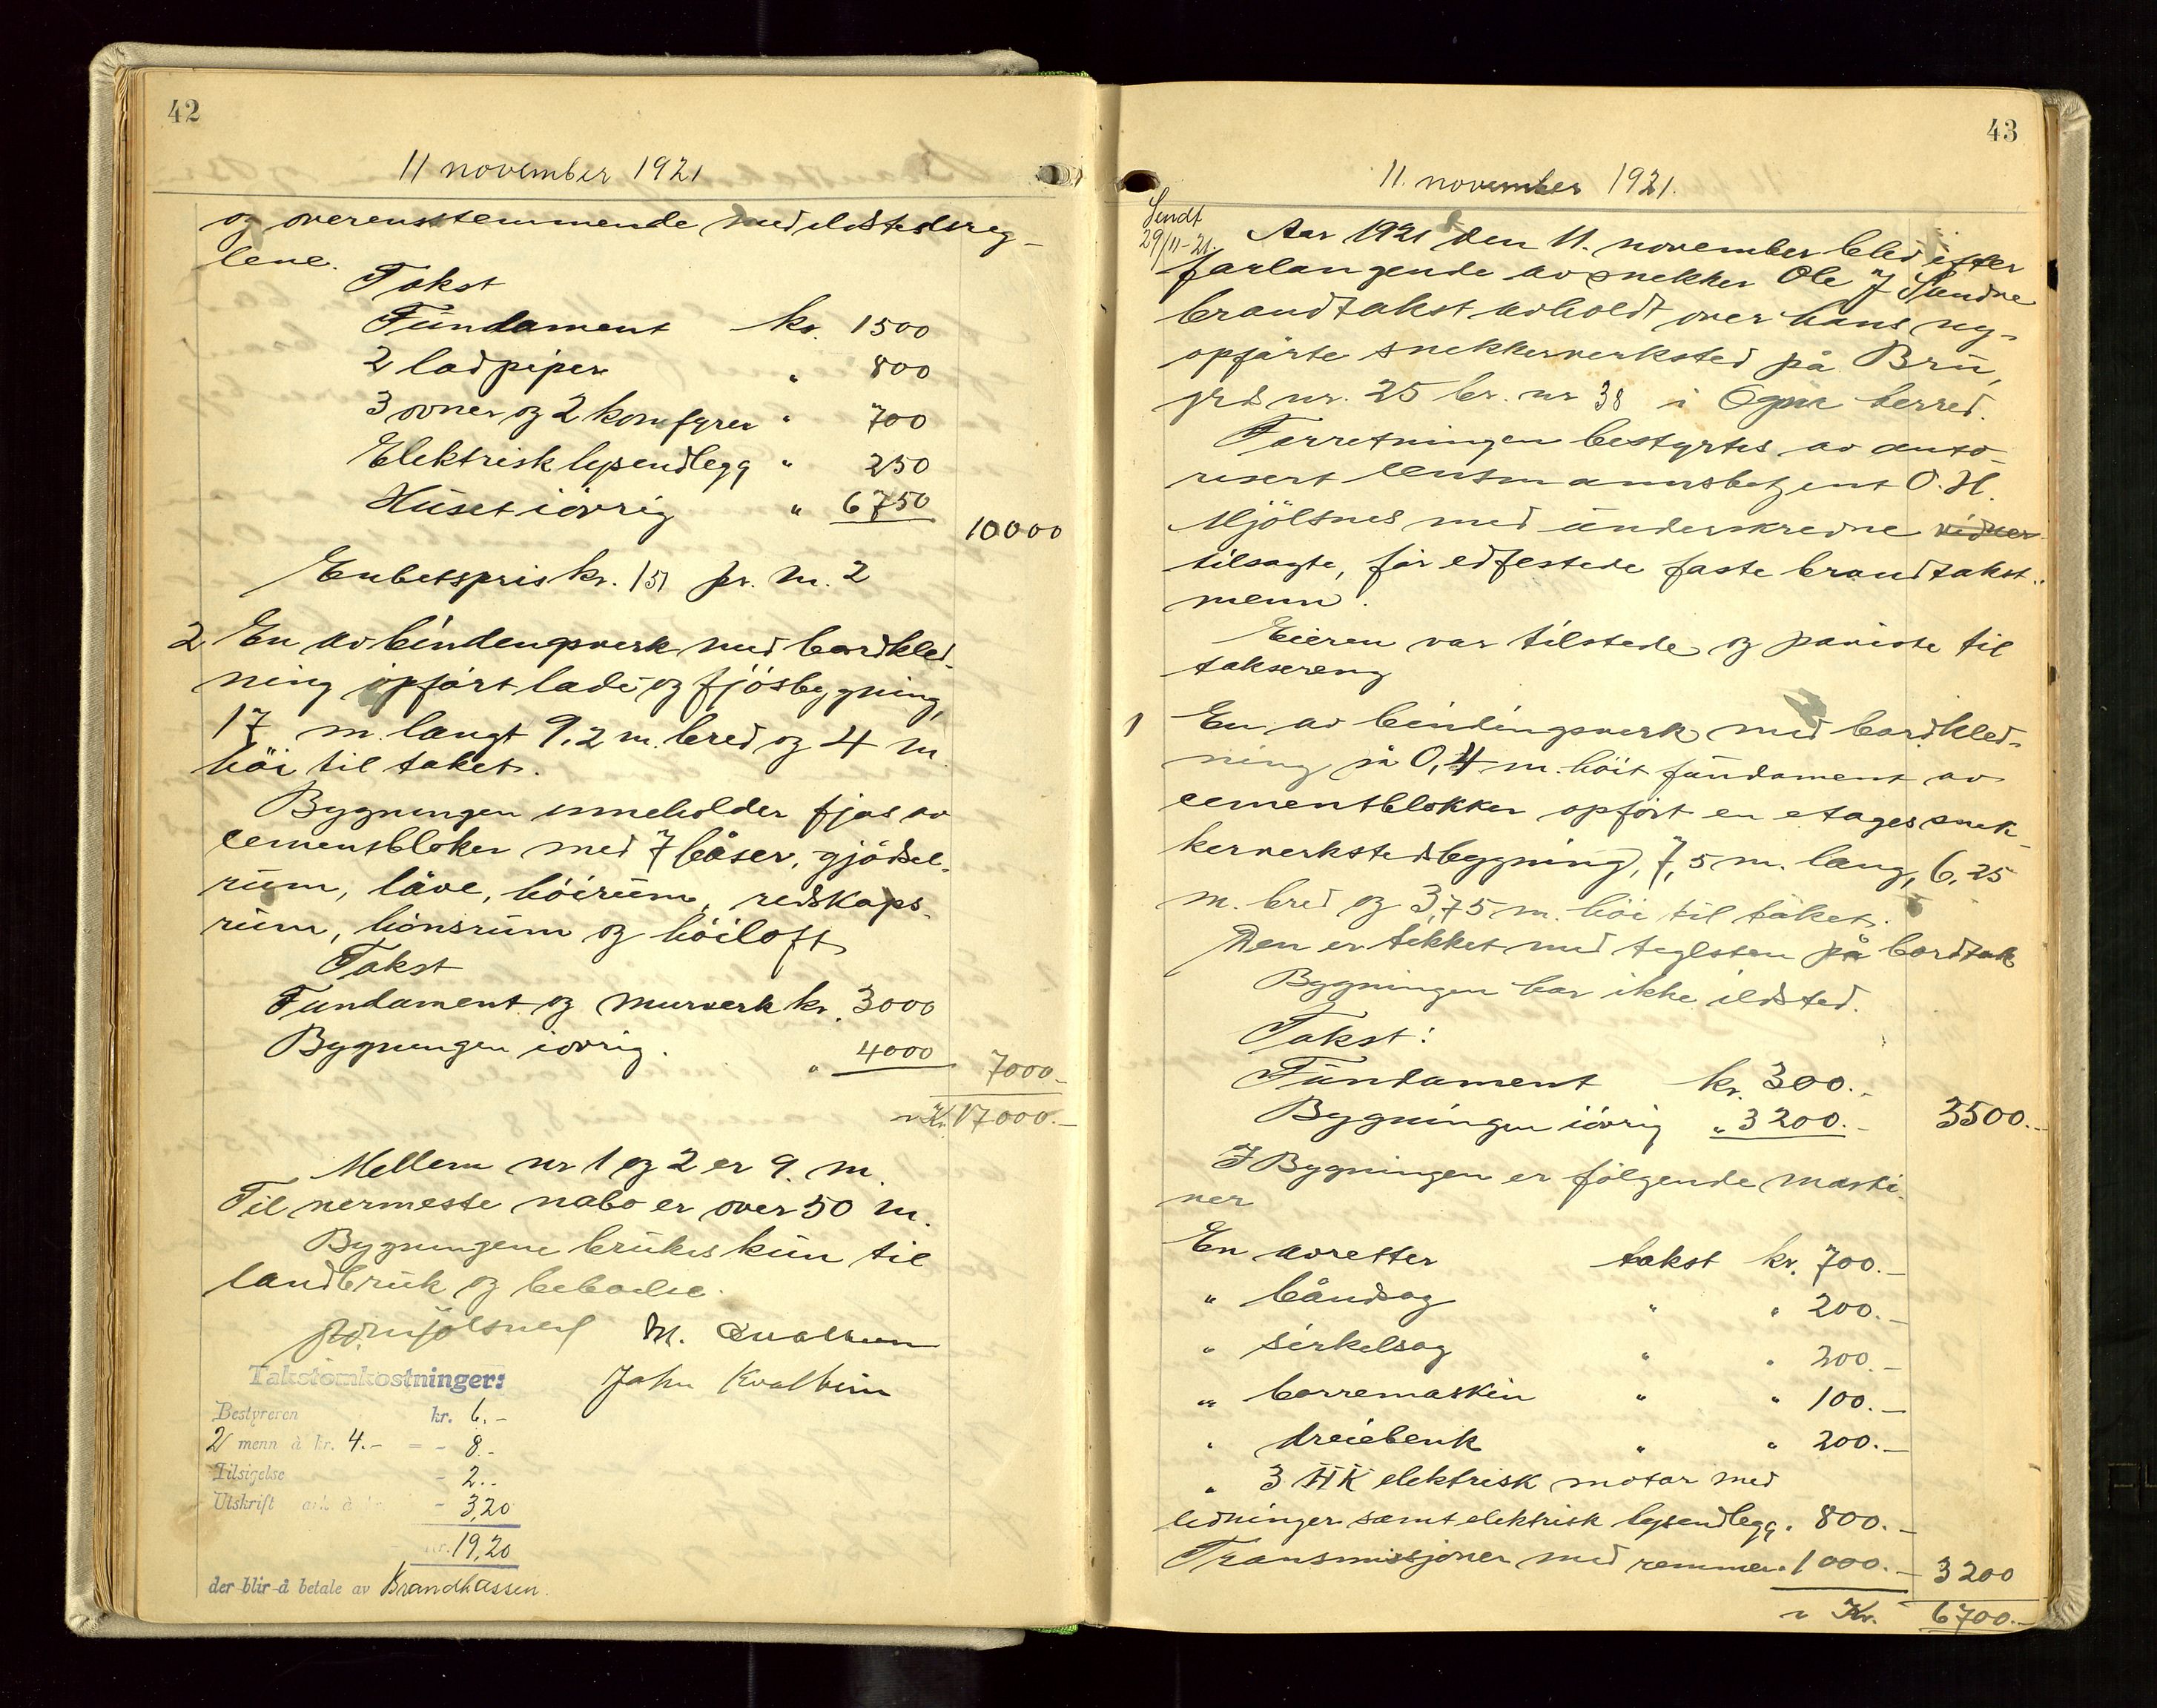 42
11 november 1921
og overensstemmende med ildstedsreg-
lene.
Takst
Fundament kr. 1500
2 ladpiper " 800
3 ovner og 2 komfyrer " 700
Elektrisk lysendlegg " 250
Huset iövrig " 6750
10000
Enhetspris kr. 151 pr. m. 2
2 En av bindengsverk med bordkled-
ning opfört lade og fjösbygning,
17 m. langt 9,2 m. bred og 4 m
höi til taket.
Bygningen inneholder fjös av
cementbloker med 7 båser, gjödsel-
rum, låve, höirum, redskaps-
rum, hönsrum og höiloft
Takst
Fundament og murverk kr. 3000
Bygningen iövrig. " 4000
7000.-
Kr. 17000.-
Mellem nr 1 og 2 er 9. m.
Til nermeste nabo er over 50 m.
Bygningene brukes kun til
landbruk og beboelse.
O.H. Mjölsnes M. Qualheim
John Kvalheim
Takstomkostninger:
Bestyreren kr. 6.-
2 menn à kr. 4.- = - 8.-
Tilsigelse - 2.-
Utskrift ark à kr - 3,20
kr. 19,20
der blir å betale av Brandkassen.
43
11. november 1921.
Sendt
29/11-21.
Aar 1921 den 11. november blev efter
forlangende av snekker Ole J Sandve
brandtakst avholdt over hans ny-
opförte snekkerverksted på Bru,
grd nr. 25 br. nr 38 i Ogna herred.
Forretningen bestyrtes av auto-
risert lensmannsbetjent O. H.
Mjölsnes med underskrevne vidner
tilsagte, för edfestede faste brandtakst-
menn.
Eieren var tilstede og paviste til
taksereng
1 En av bindingsverk med bordkled-
ning på 0,4 m. höit fundament av
cementblokker opfört en etages snek-
kerverkstedsbygning, 7,5 m. lang, 6,25
m. bred og 3,75 m. höi til taket.
Den er tekket med teglsten på bordtak
Bygningen har ikke ildsted.
Takst:
Fundament kr. 300.-
Bygningen iövrig " 3200.- 3500.-
I Bygningen er fölgende maski-
ner
En avretter takst kr. 700.-
" båndsag " " 200.-
" sirkelsag " " 200.-
" borremaskin " " 100.-
" dreiebenk " " 200.-
" 3 HK elektrisk motor med
ledninger samt elektrisk lysendlegg " 800.-
Transmissjoner med remmer " 1000.- 3200
Kr. 6700.-